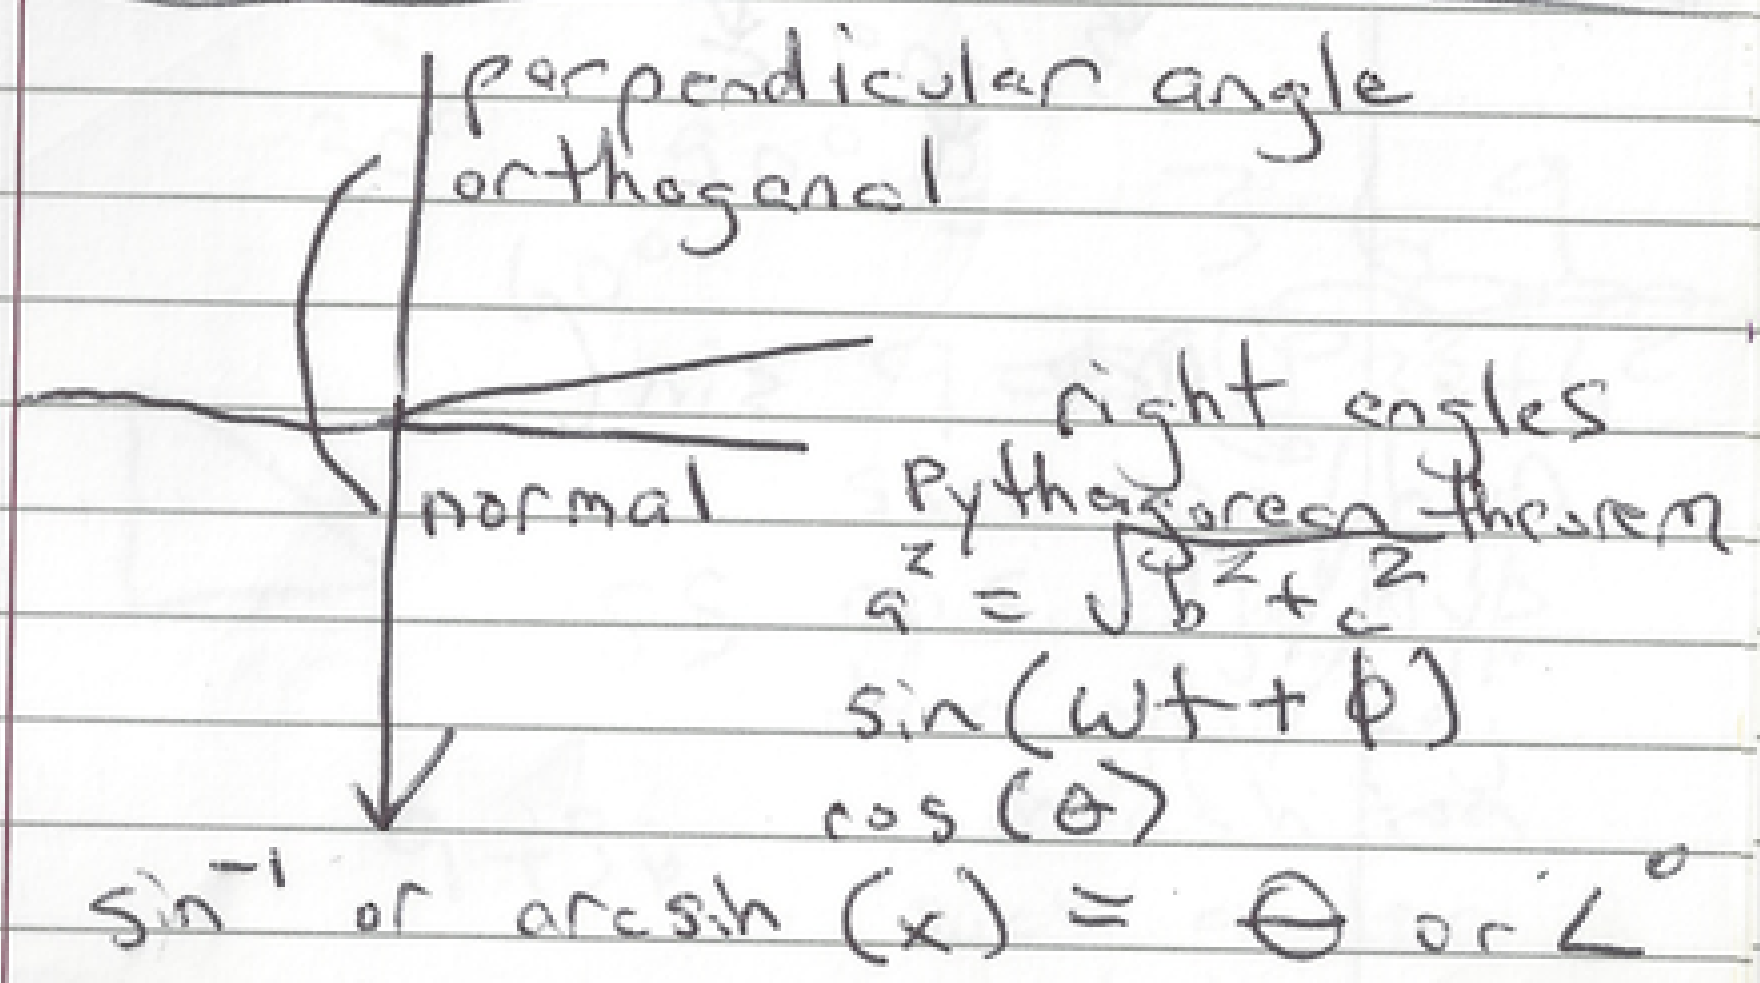 perpendicular angle
orthoganal
right angles
normal
Pythagorean theorem
a² = √b² + c²
sin(ωt + φ)
cos(θ)
sin⁻¹ or arcsin (x) = θ or ∠°